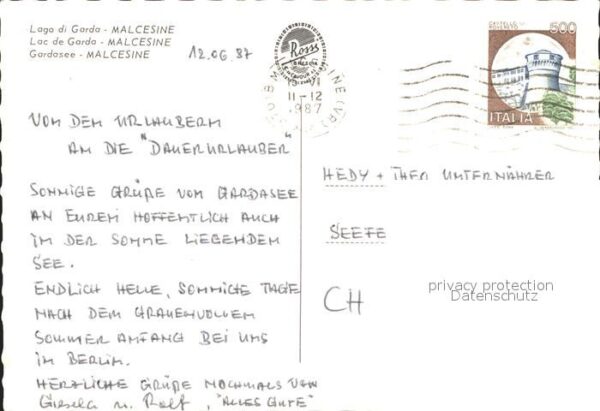 Lago di Garda - MALCESINE
Lac de Garda - MALCESINE
Gardasee - MALCESINE
12.06.87
Rossi
11-12
1987
CASTELLO DI ROVERETO
500
ITALIA
VON DEN URLAUBERN
AN DIE "DAUERURLAUBER"
SONNIGE GRÜßE VOM GARDASEE
AN EUREN HOFFENTLICH AUCH
IN DER SONNE LIEGENDEN
SEE.
ENDLICH HELLE, SONNIGE TAGE
NACH DEM GRAUENVOLLEN
SOMMER ANFANG BEI UNS
IN BERLIN.
HERZLICHE GRÜßE NOCHMALS VON
Gisela u. Rolf, "ALLES GUTE"
HEDY + THEO UNTERNÄHRER
SEEFE
CH
privacy protection
Datenschutz